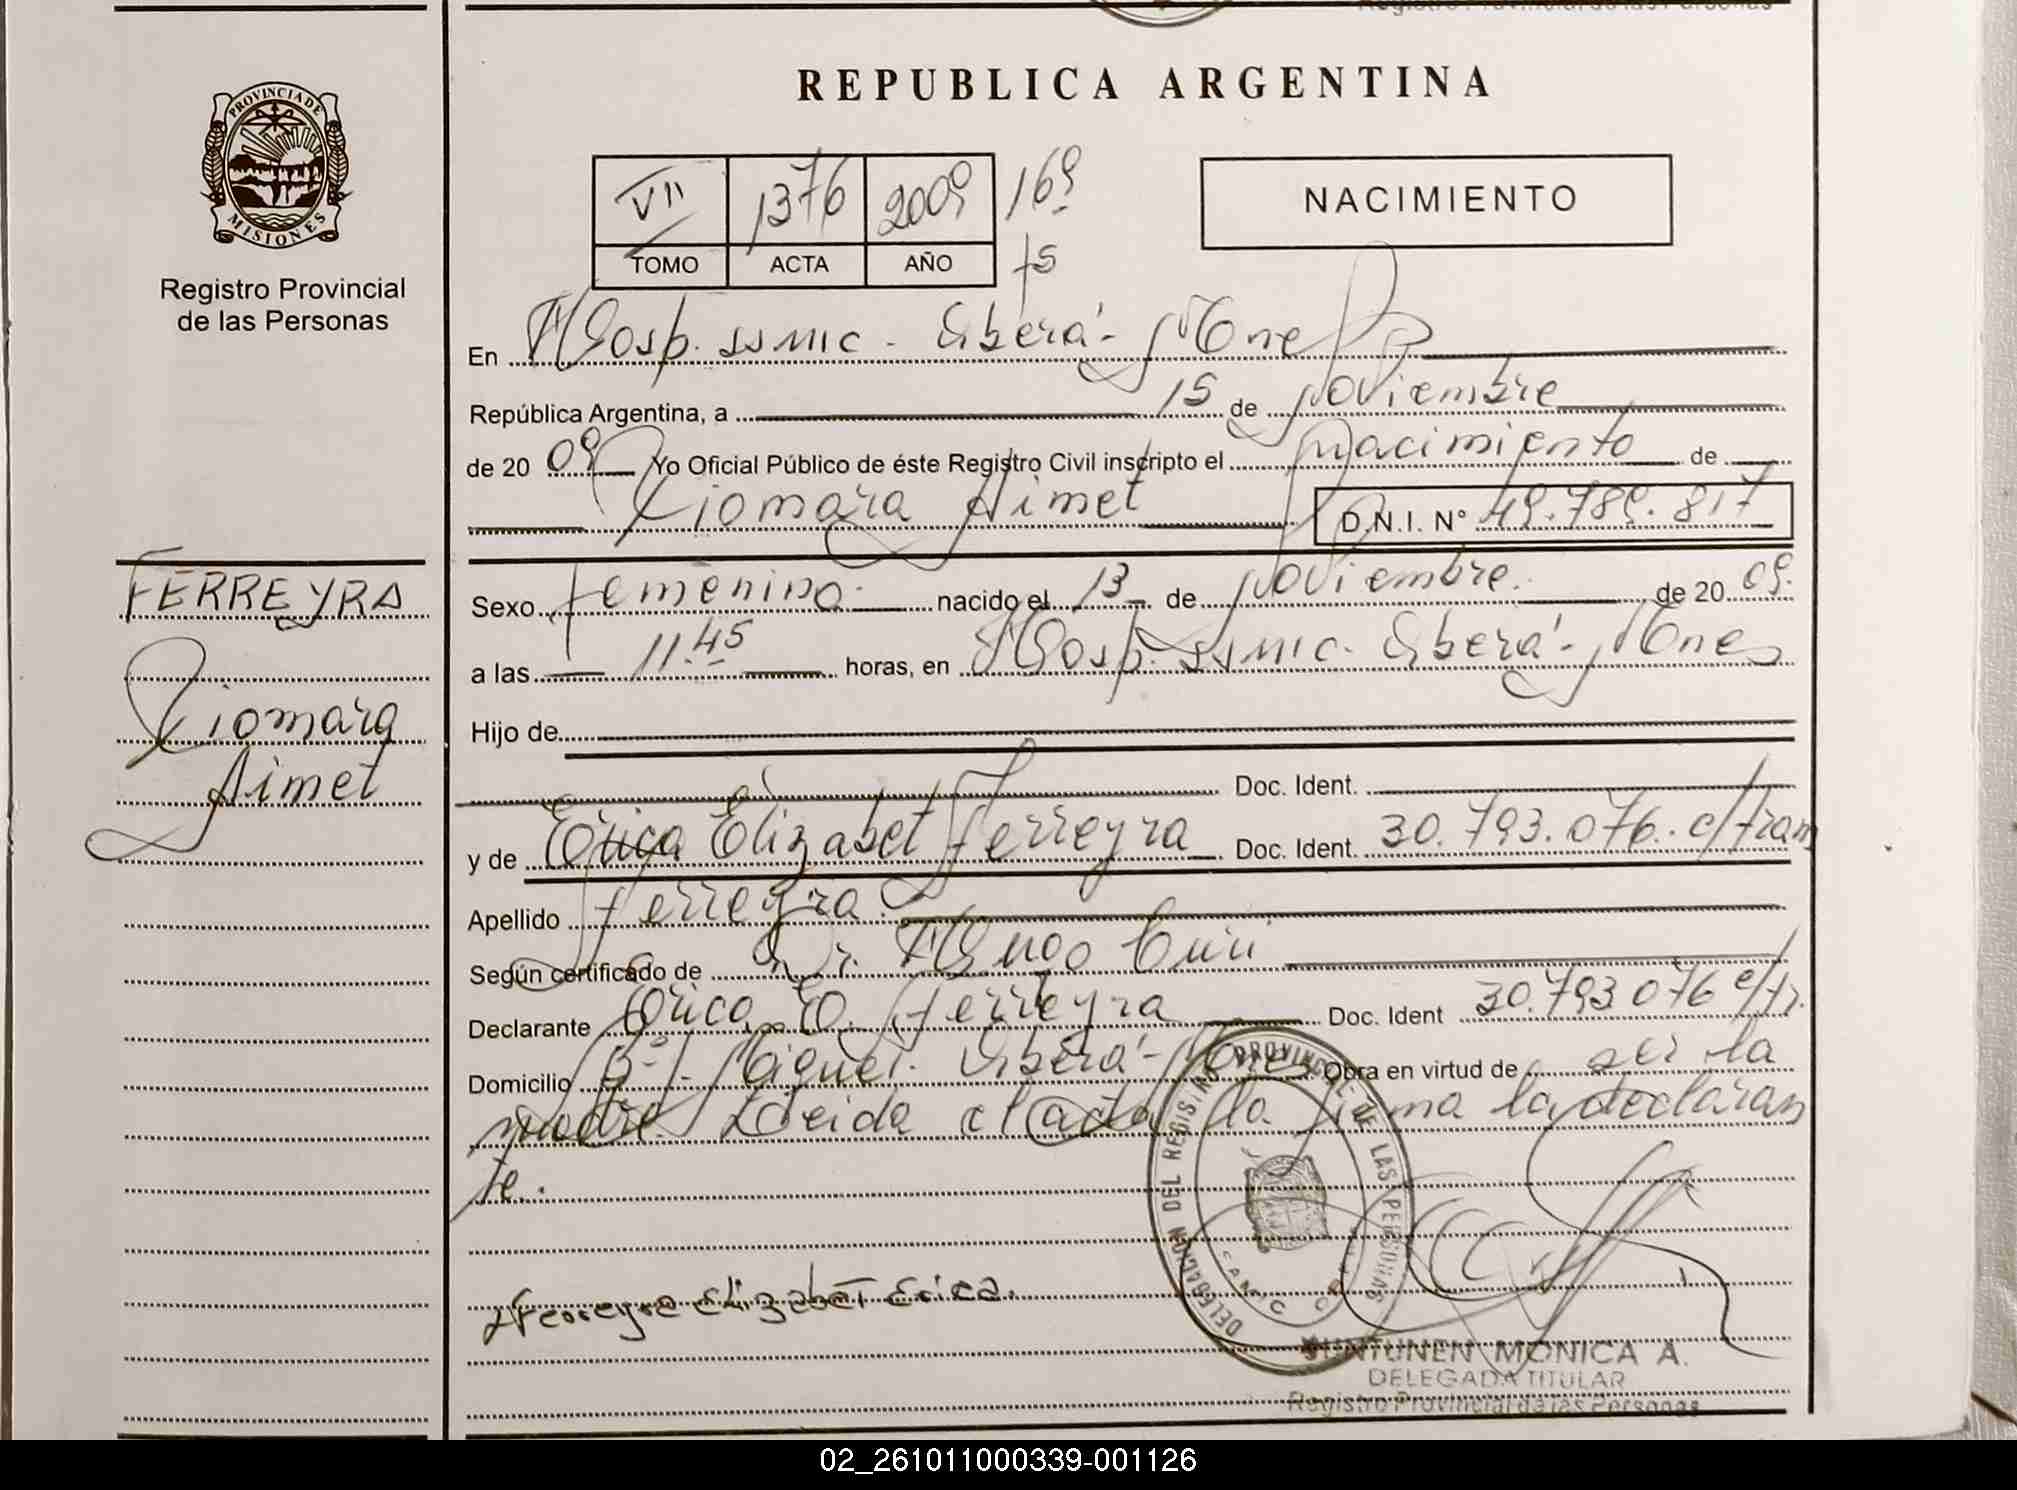 REPUBLICA ARGENTINA
PROVINCIA DE
MISIONES
Registro Provincial
de las Personas
VII 1376 2009 169
TOMO ACTA AÑO fs
NACIMIENTO
En Hosp. ssmic. Eiberá - Mnes
República Argentina, a 15 de Noviembre
de 20 09 Yo Oficial Público de éste Registro Civil inscripto el Nacimiento de
Xiomara Aimet D.N.I. Nº 49.789.817
FERREYRA
Xiomara
Aimet
Sexo femenino. nacido el 13 de Noviembre. de 20 09.
a las 11.45 horas, en Hosp. ssmic. Eiberá - Mnes
Hijo de
Doc. Ident.
y de Erica Elizabet Ferreyra Doc. Ident. 30.793.076. c/tram
Apellido Ferreyra.
Según certificado de Dr. Hugo
Declarante Erica E. Ferreyra Doc. Ident 30.793 076 c/tr.
Domicilio Bº Miguel. Eiberá - Mnes Obra en virtud de ser la
madre. Leida el acta la firma la declaran
te.
Ferreyra Elizabet Erica.
DELEGACION DEL REGISTRO PROVINCIAL DE LAS PERSONAS
MONICA A.
DELEGADA TITULAR
Registro Provincial de las Personas
02_261011000339-001126